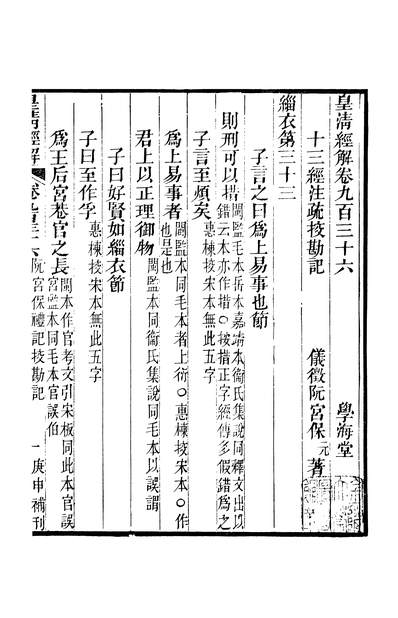 皇清經解卷九百三十六　學海堂
十三經注疏挍勘記　儀徵阮宮保元著
緇衣第三十三
子言之曰爲上易事也節
則刑可以措閩監本毛本岳本嘉靖本衞氏集說同釋文出以錯云本亦作措○按措正字經傳多假錯爲之
子言至煩矣惠棟挍宋本無此五字
爲上易事者閩監本同毛本者上衍○惠棟挍宋本○作也是也
君上以正理御物閩監本同衞氏集說同毛本以誤謂
子曰好賢如緇衣節
子曰至作孚惠棟挍宋本無此五字
爲王后宮巷官之長閩本作官考文引宋板同此本官誤宮監本同毛本官誤伯
皇清經解　卷九百三十六　阮宮保禮記挍勘記　一　庚申補刊